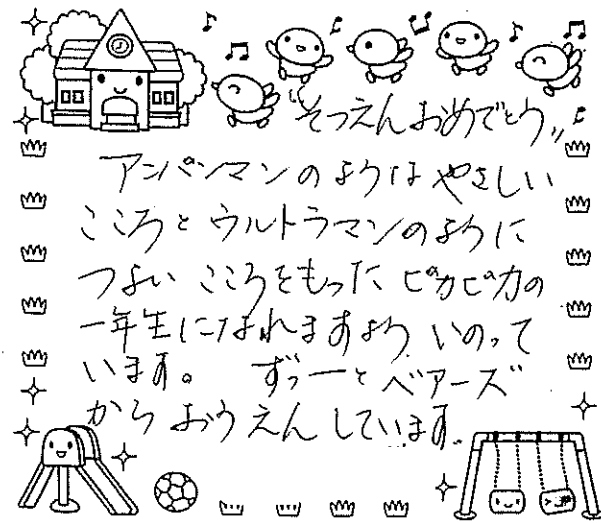 "そつえんおめでとう"
アンパンマンのようなやさしい
こころとウルトラマンのように
つよいこころをもったピカピカの
一年生になれますよう いのって
います。 ずっーとベアーズ
からおうえんしています。